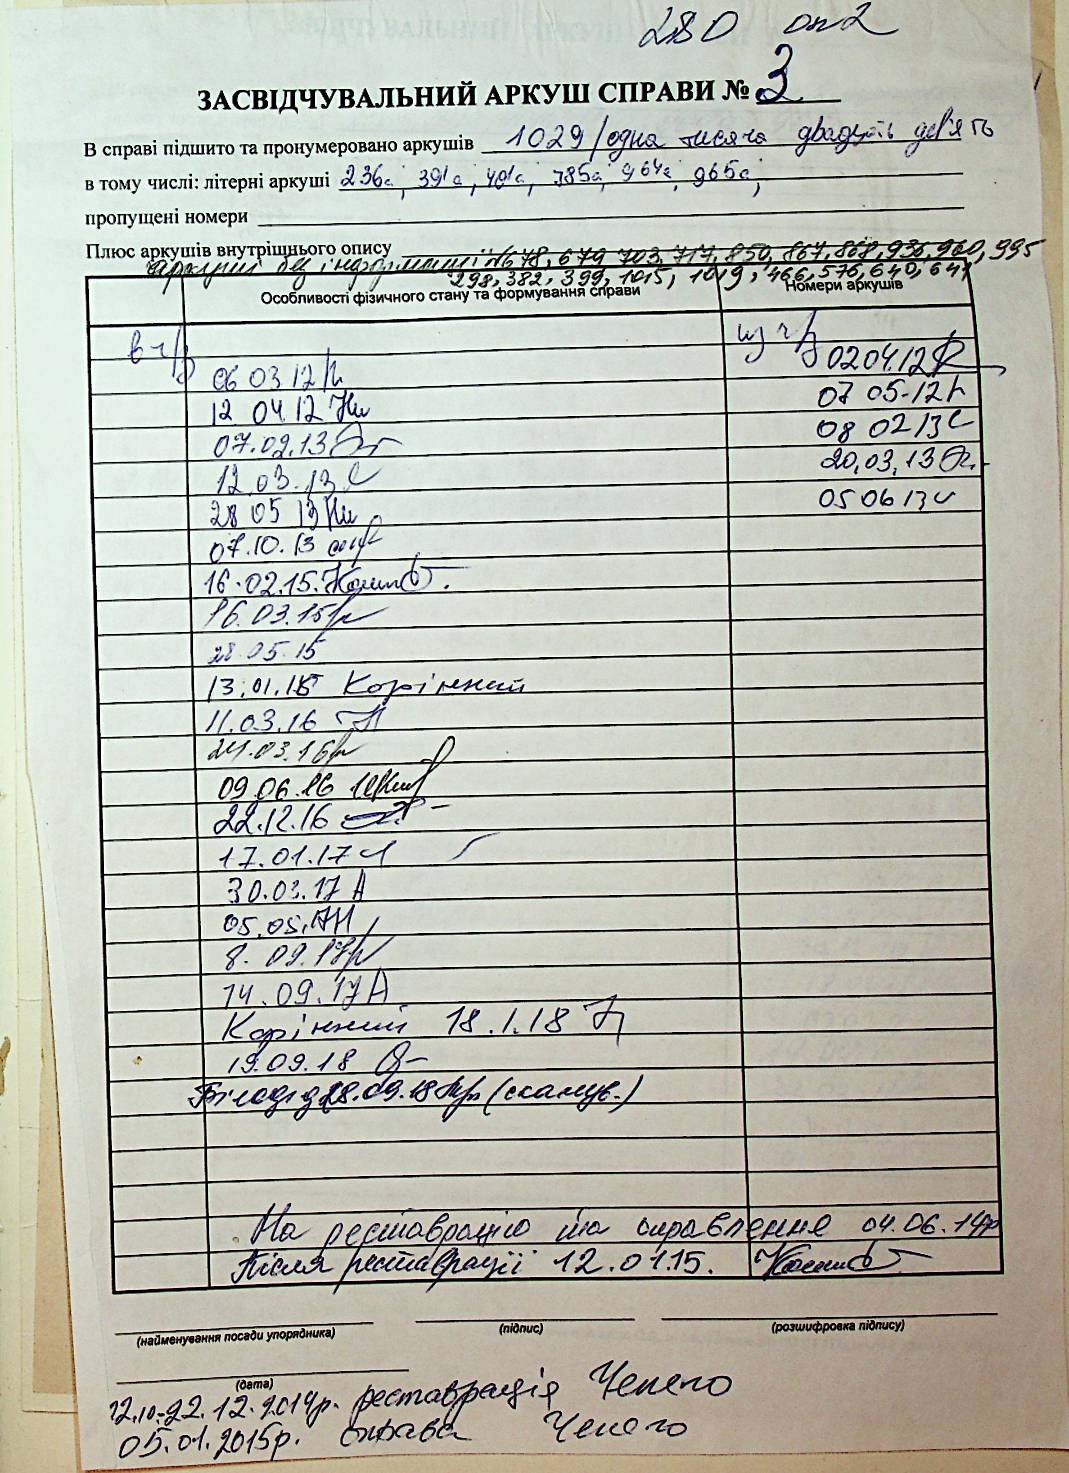 280 оп2
ЗАСВІДЧУВАЛЬНИЙ АРКУШ СПРАВИ № 3
В справі підшито та пронумеровано аркушів 1029 /одна тисяча двадцять дев'ять
в тому числі: літерні аркуші 236а, 391а, 491а, 785а, 964а, 965а,
пропущені номери
Плюс аркушів внутрішнього опису
аркуші без інформації №678, 679, 703, 717, 850, 867, 868, 936, 960, 995
298, 382, 399, 1015, 1019, 466, 576, 640, 641
Особливості фізичного стану та формування справи Номери аркушів
в ч/з из ч/з
06 03 12 02 04.12
12 04 12 07 05-12
07.02.13 08 02 13
12.03.13 20.03.13
28 05 13 05 06 13
07.10.13
16.02.15.
16.03.15
28.05.15
13.01.15 Корінний
11.03.16
24.03.16
09.06.16
22.12.16
17.01.17
30.03.17
05.05.17
8.09.17
14.09.17
Корінний 18.1.18
19.09.18
Білодід 28.09.18 (сканув.)
На реставрацію та оправлення 04.06.14р
Після реставрації 12.01.15.
(найменування посади упорядника) (підпис) (розшифровка підпису)
(дата)
12.10-22.12.2014р. реставрація Чепего
05.01.2015р. оправа Чепего